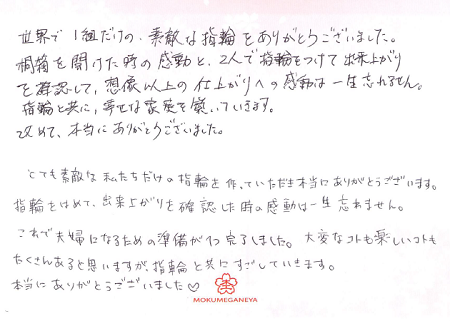 世界で1組だけの、素敵な指輪をありがとうございました。
桐箱を開けた時の感動と、2人で指輪をつけて出来上がり
を確認して、想像以上の仕上がりへの感動は一生忘れません。
指輪と共に、幸せな家庭を築いていきます。
改めて、本当にありがとうございました。
とても素敵な私たちだけの指輪を作っていただき本当にありがとうございます。
指輪をはめて、出来上がりを確認した時の感動は一生忘れません。
これで夫婦になるための準備が1つ完了しました。大変なコトも楽しいコトも
たくさんあると思いますが、指輪と共にすごしていきます。
本当にありがとうございました♡
MOKUMEGANEYA